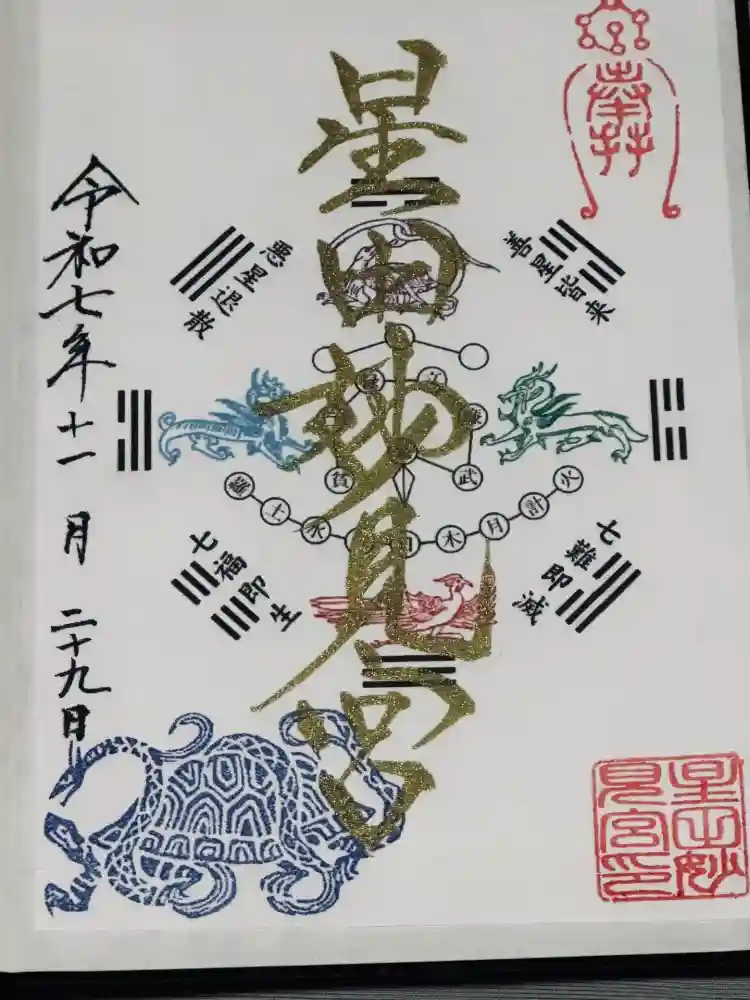 奉拝
星田妙見宮
令和七年十一月二十九日
悪星退散
善星皆来
七難即滅
七福即生
文
武
貧
羅
土
水
木
月
計
火
星田妙見宮印